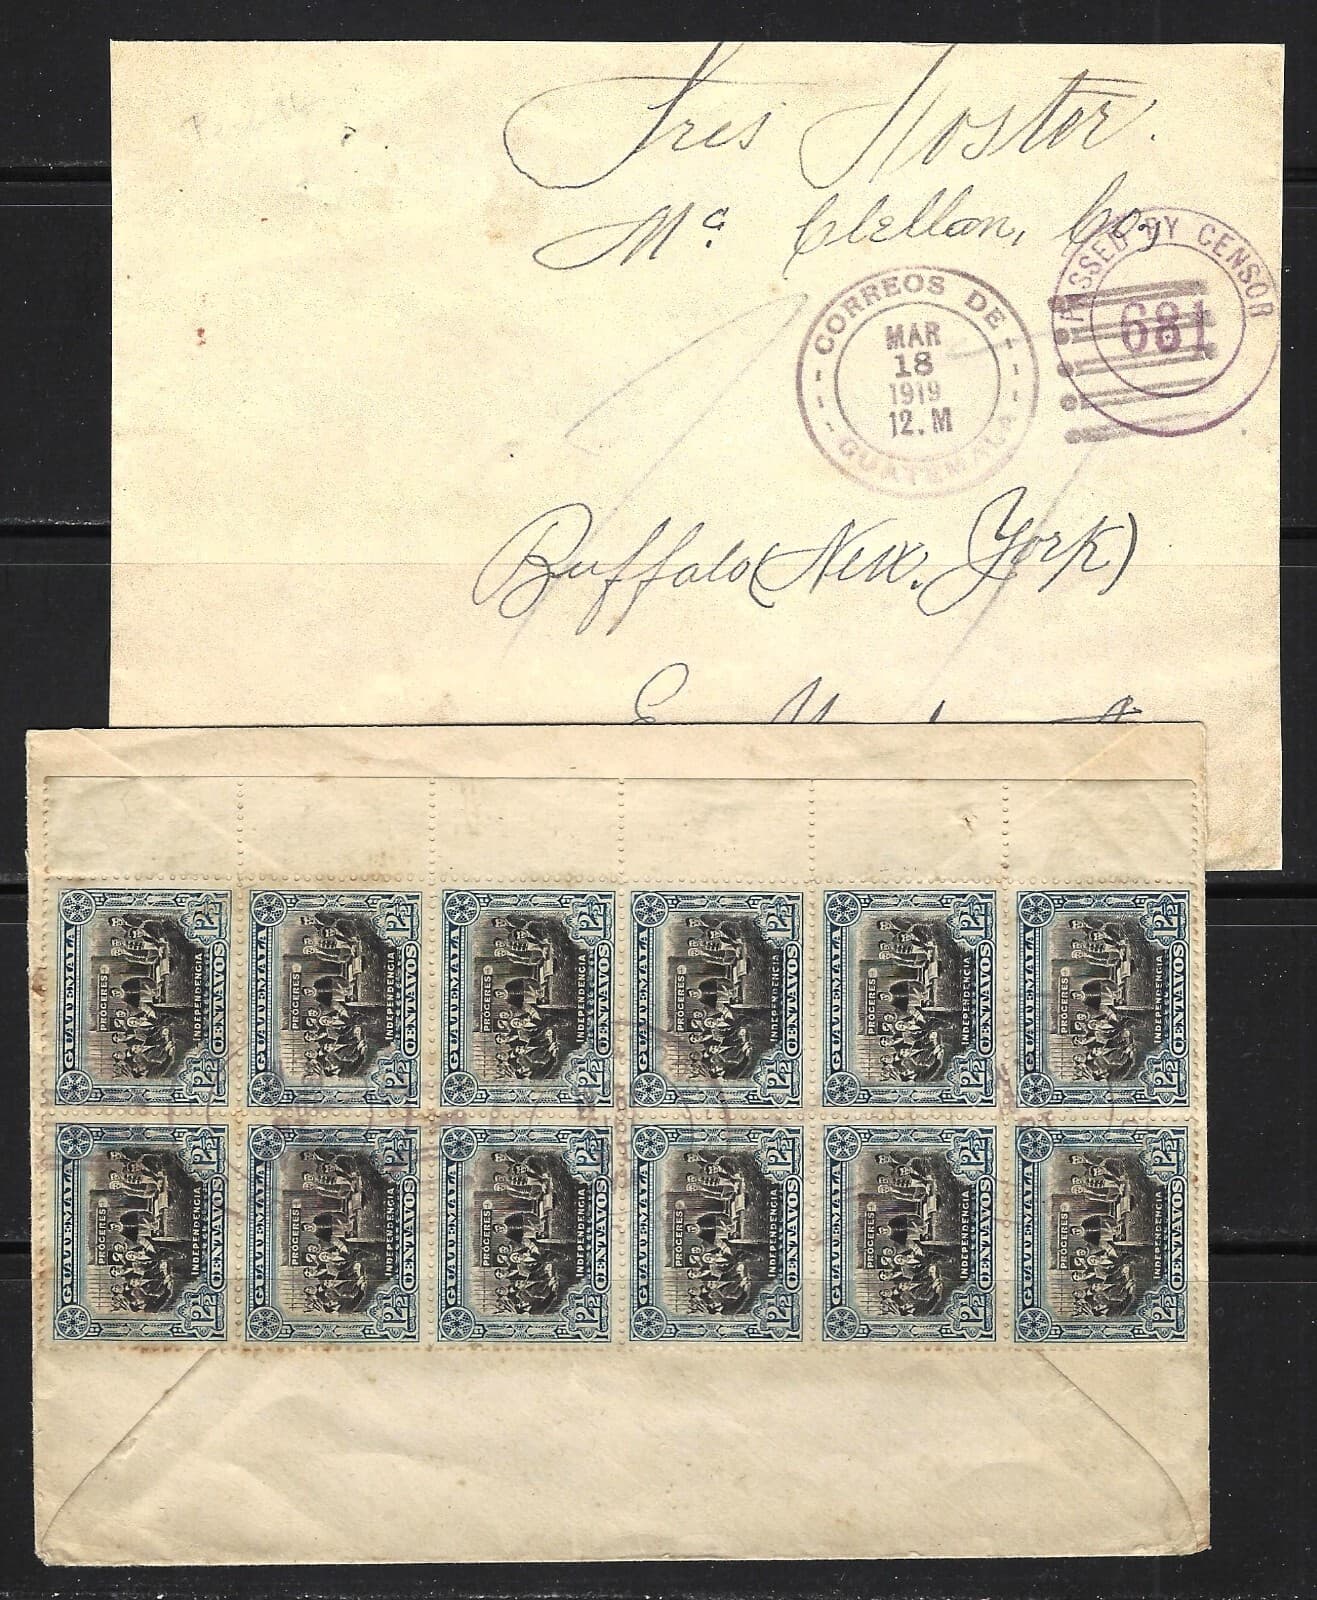 Sres Foster.
Mc. Clellan, Co,
PASSED BY CENSOR
681
CORREOS DE
MAR
18
1919
12.M
GUATEMALA
Buffalo (New. York)
GUATEMALA 12½ PRÓCERES INDEPENDENCIA 12½ CENTAVOS
GUATEMALA 12½ PRÓCERES INDEPENDENCIA 12½ CENTAVOS
GUATEMALA 12½ PRÓCERES INDEPENDENCIA 12½ CENTAVOS
GUATEMALA 12½ PRÓCERES INDEPENDENCIA 12½ CENTAVOS
GUATEMALA 12½ PRÓCERES INDEPENDENCIA 12½ CENTAVOS
GUATEMALA 12½ PRÓCERES INDEPENDENCIA 12½ CENTAVOS
GUATEMALA 12½ PRÓCERES INDEPENDENCIA 12½ CENTAVOS
GUATEMALA 12½ PRÓCERES INDEPENDENCIA 12½ CENTAVOS
GUATEMALA 12½ PRÓCERES INDEPENDENCIA 12½ CENTAVOS
GUATEMALA 12½ PRÓCERES INDEPENDENCIA 12½ CENTAVOS
GUATEMALA 12½ PRÓCERES INDEPENDENCIA 12½ CENTAVOS
GUATEMALA 12½ PRÓCERES INDEPENDENCIA 12½ CENTAVOS